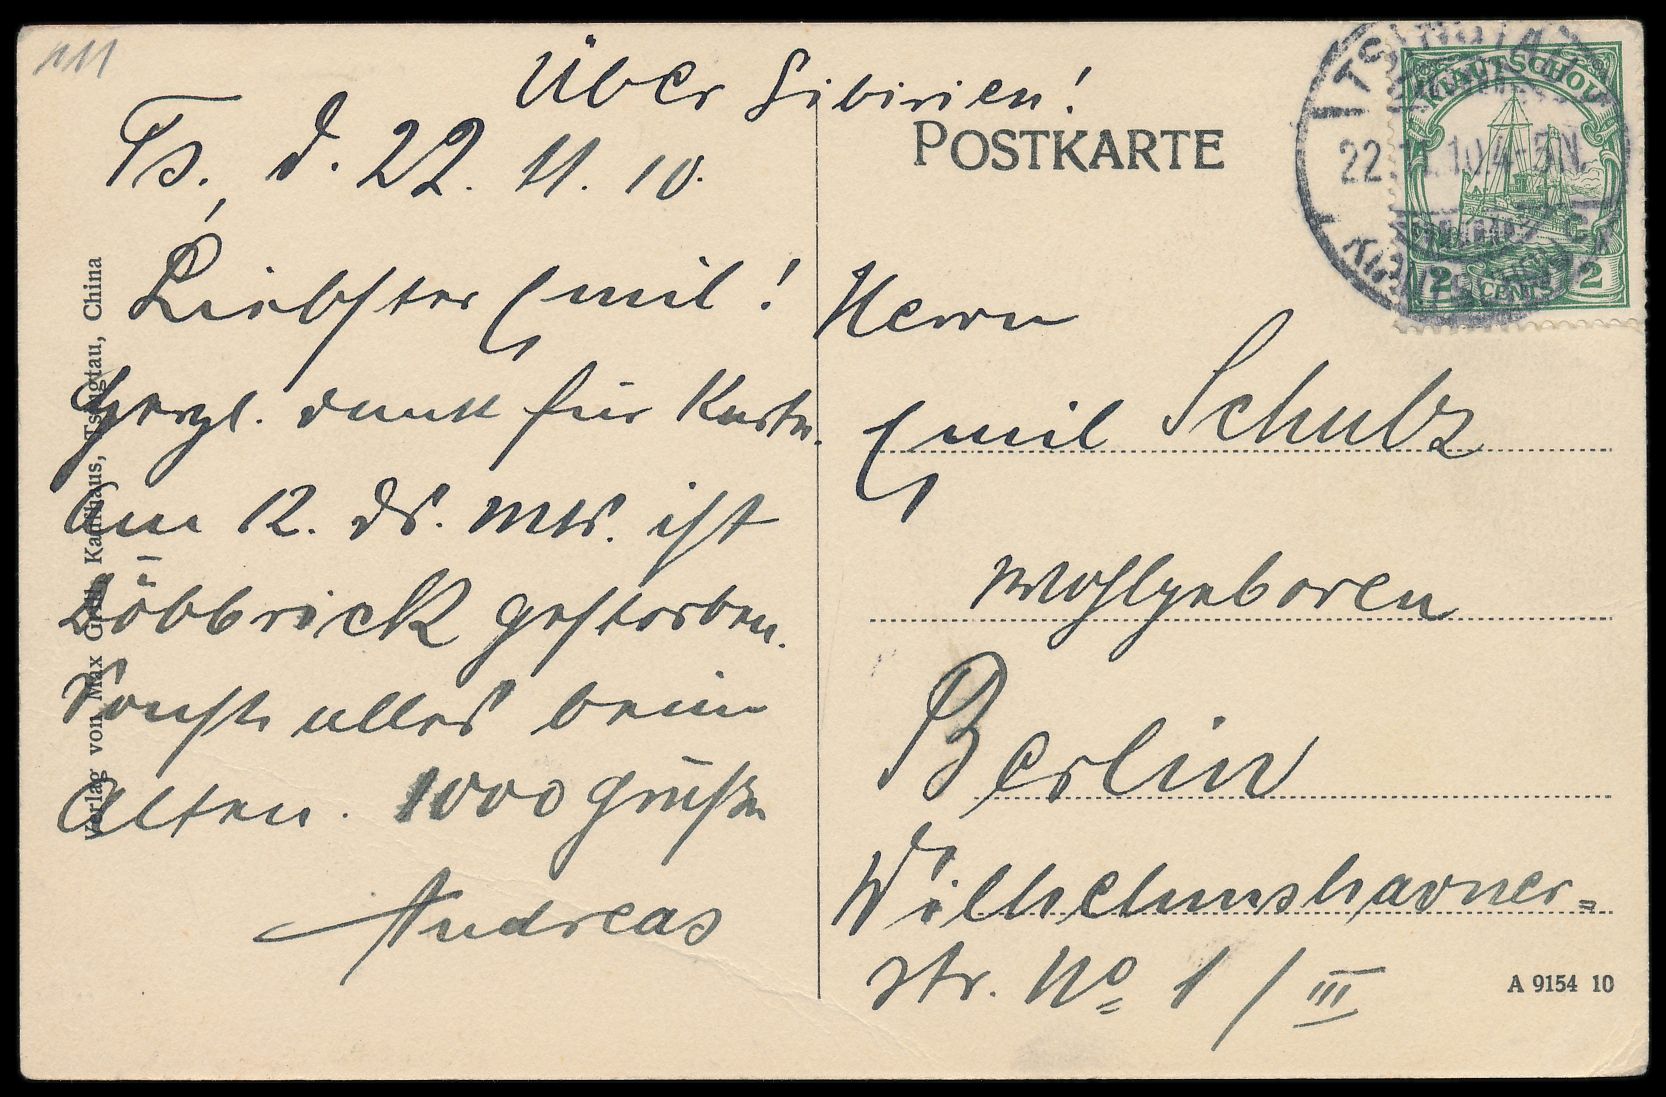 Über Sibirien!
Ts, d. 22. 11. 10.
Liebster Emil!
Herzl. dank für Karte.
Am 12. ds. Mts. ist
Döbbrick gestorben.
Sonst alles beim
Alten. 1000 Grüße
Andreas
Verlag von Max Grill, Kaufhaus, Tsingtau, China
POSTKARTE
KIAUTSCHOU
2 CENTS 2
TSINGTAU
22.11.10.4-5N.
KIAUTSCHOU
Herrn
Emil Schulz
Wohlgeboren
Berlin
Wilhelmshavner=
str. No. 1 / III
A 9154 10